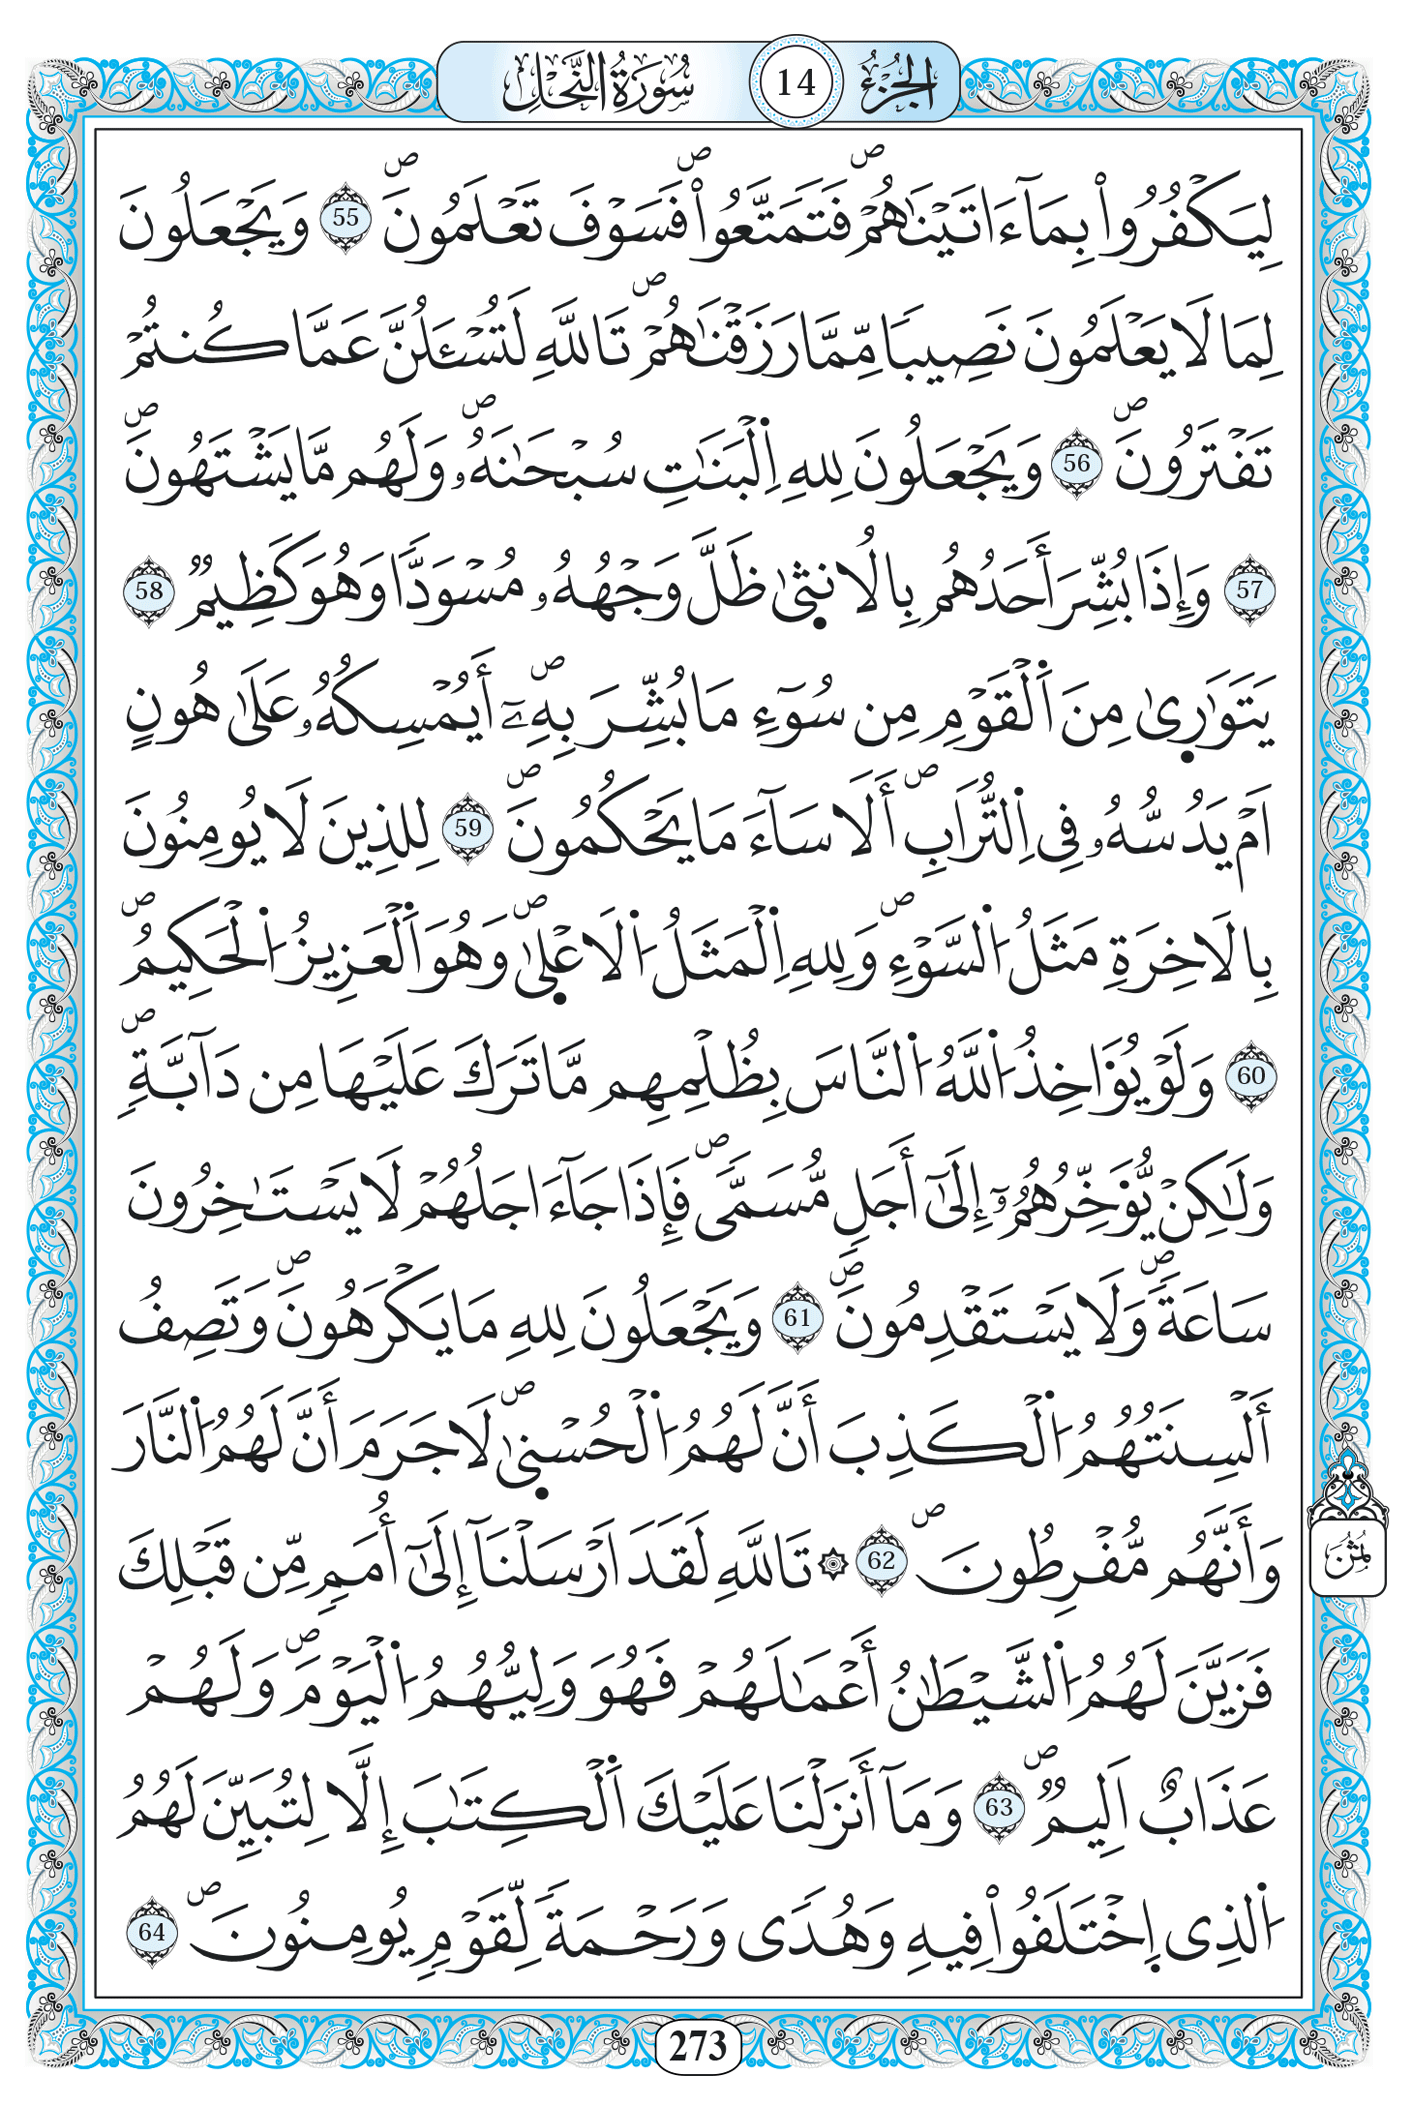 الجزء 14 سورة النحل
لِيَكْفُرُواْ بِمَآ ءَاتَيْنَٰهُمْۖ فَتَمَتَّعُواْۖ فَسَوْفَ تَعْلَمُونَۖ 55 وَيَجْعَلُونَ
لِمَا لَا يَعْلَمُونَ نَصِيبًا مِّمَّا رَزَقْنَٰهُمْۖ تَاللَّهِ لَتُسْـَٔلُنَّ عَمَّا كُنتُمْ
تَفْتَرُونَۖ 56 وَيَجْعَلُونَ لِلهِ اِ۬لْبَنَٰتِ سُبْحَٰنَهُۥۖ وَلَهُم مَّا يَشْتَهُونَۖ
57 وَإِذَا بُشِّرَ أَحَدُهُم بِالُانث۪ىٰ ظَلَّ وَجْهُهُۥ مُسْوَدّٗا وَهُوَ كَظِيمٞ 58
يَتَوَٰر۪ىٰ مِنَ اَ۬لْقَوْمِ مِن سُوٓءِ مَا بُشِّرَ بِهِۦٓۖ أَيُمْسِكُهُۥ عَلَىٰ هُونٍ
اَمْ يَدُسُّهُۥ فِى اِ۬لتُّرَابِۖ أَلَا سَآءَ مَا يَحْكُمُونَۖ 59 لِلذِينَ لَا يُومِنُونَ
بِالَاخِرَةِ مَثَلُ اُ۬لسَّوْءِۖ وَلِلهِ اِ۬لْمَثَلُ اُ۬لَاعْل۪ىٰۖ وَهُوَ اَ۬لْعَزِيزُ اُ۬لْحَكِيمُۖ
60 وَلَوْ يُؤَاخِذُ اُ۬للَّهُ اُ۬لنَّاسَ بِظُلْمِهِم مَّا تَرَكَ عَلَيْهَا مِن دَآبَّةٖۖ
وَلَٰكِنْ يُّؤَخِّرُهُمُۥٓ إِلَىٰٓ أَجَلٖ مُّسَمّٗىۖ فَإِذَا جَآءَ اجَلُهُمْ لَا يَسْتَٰخِرُونَ
سَاعَةٗۖ وَلَا يَسْتَقْدِمُونَۖ 61 وَيَجْعَلُونَ لِلهِ مَا يَكْرَهُونَۖ وَتَصِفُ
أَلْسِنَتُهُمُ اُ۬لْكَذِبَ أَنَّ لَهُمُ اُ۬لْحُسْن۪ىٰۖ لَا جَرَمَ أَنَّ لَهُمُ اُ۬لنَّارَ
وَأَنَّهُم مُّفْرِطُونَۖ 62 ۞ تَاللَّهِ لَقَدَ اَرْسَلْنَآ إِلَىٰٓ أُمَمٖ مِّن قَبْلِكَ
ثمن
فَزَيَّنَ لَهُمُ اُ۬لشَّيْطَٰنُ أَعْمَٰلَهُمْ فَهُوَ وَلِيُّهُمُ اُ۬لْيَوْمَۖ وَلَهُمْ
عَذَابٌ اَلِيمٞۖ 63 وَمَآ أَنزَلْنَا عَلَيْكَ اَ۬لْكِتَٰبَ إِلَّا لِتُبَيِّنَ لَهُمُ
اُ۬لذِى اِ۪خْتَلَفُواْ فِيهِ وَهُدٗى وَرَحْمَةٗ لِّقَوْمٖ يُومِنُونَۖ 64
273